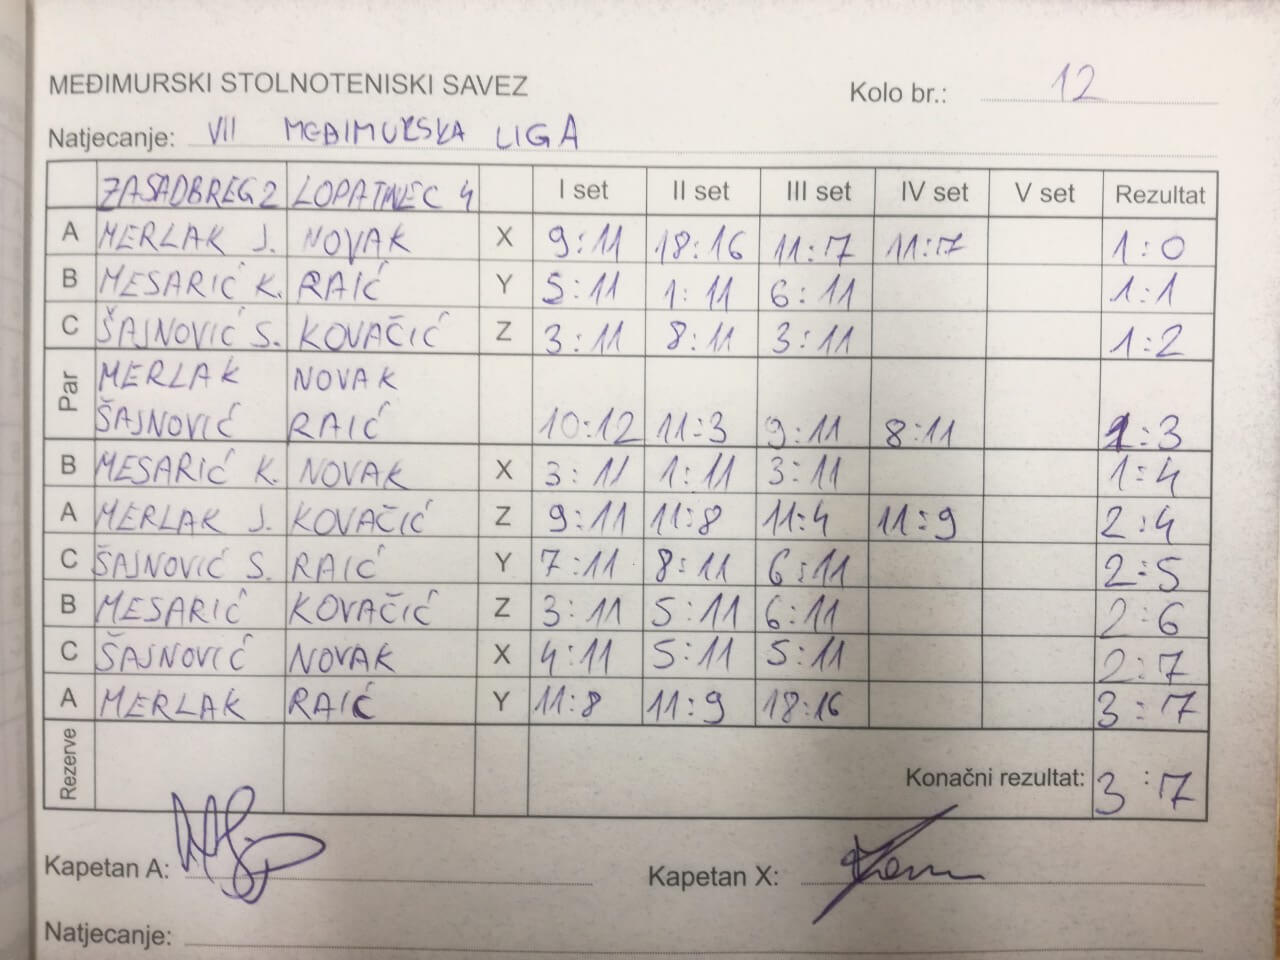 MEĐIMURSKI STOLNOTENISKI SAVEZ
Kolo br.: 12
Natjecanje: VII MEĐIMURSKA LIGA
ZASADBREG 2 LOPATINEC 4 I set II set III set IV set V set Rezultat
A MERLAK J. NOVAK X 9:11 18:16 11:7 11:7 1:0
B MESARIĆ K. RAIĆ Y 5:11 1:11 6:11 1:1
C ŠAJNOVIĆ S. KOVAČIĆ Z 3:11 8:11 3:11 1:2
Par MERLAK NOVAK
ŠAJNOVIĆ RAIĆ 10:12 11:3 9:11 8:11 1:3
B MESARIĆ K. NOVAK X 3:11 1:11 3:11 1:4
A MERLAK J. KOVAČIĆ Z 9:11 11:8 11:4 11:9 2:4
C ŠAJNOVIĆ S. RAIĆ Y 7:11 8:11 6:11 2:5
B MESARIĆ KOVAČIĆ Z 3:11 5:11 6:11 2:6
C ŠAJNOVIĆ NOVAK X 4:11 5:11 5:11 2:7
A MERLAK RAIĆ Y 11:8 11:9 18:16 3:7
Rezerve Konačni rezultat: 3:7
Kapetan A: Kapetan X:
Natjecanje: